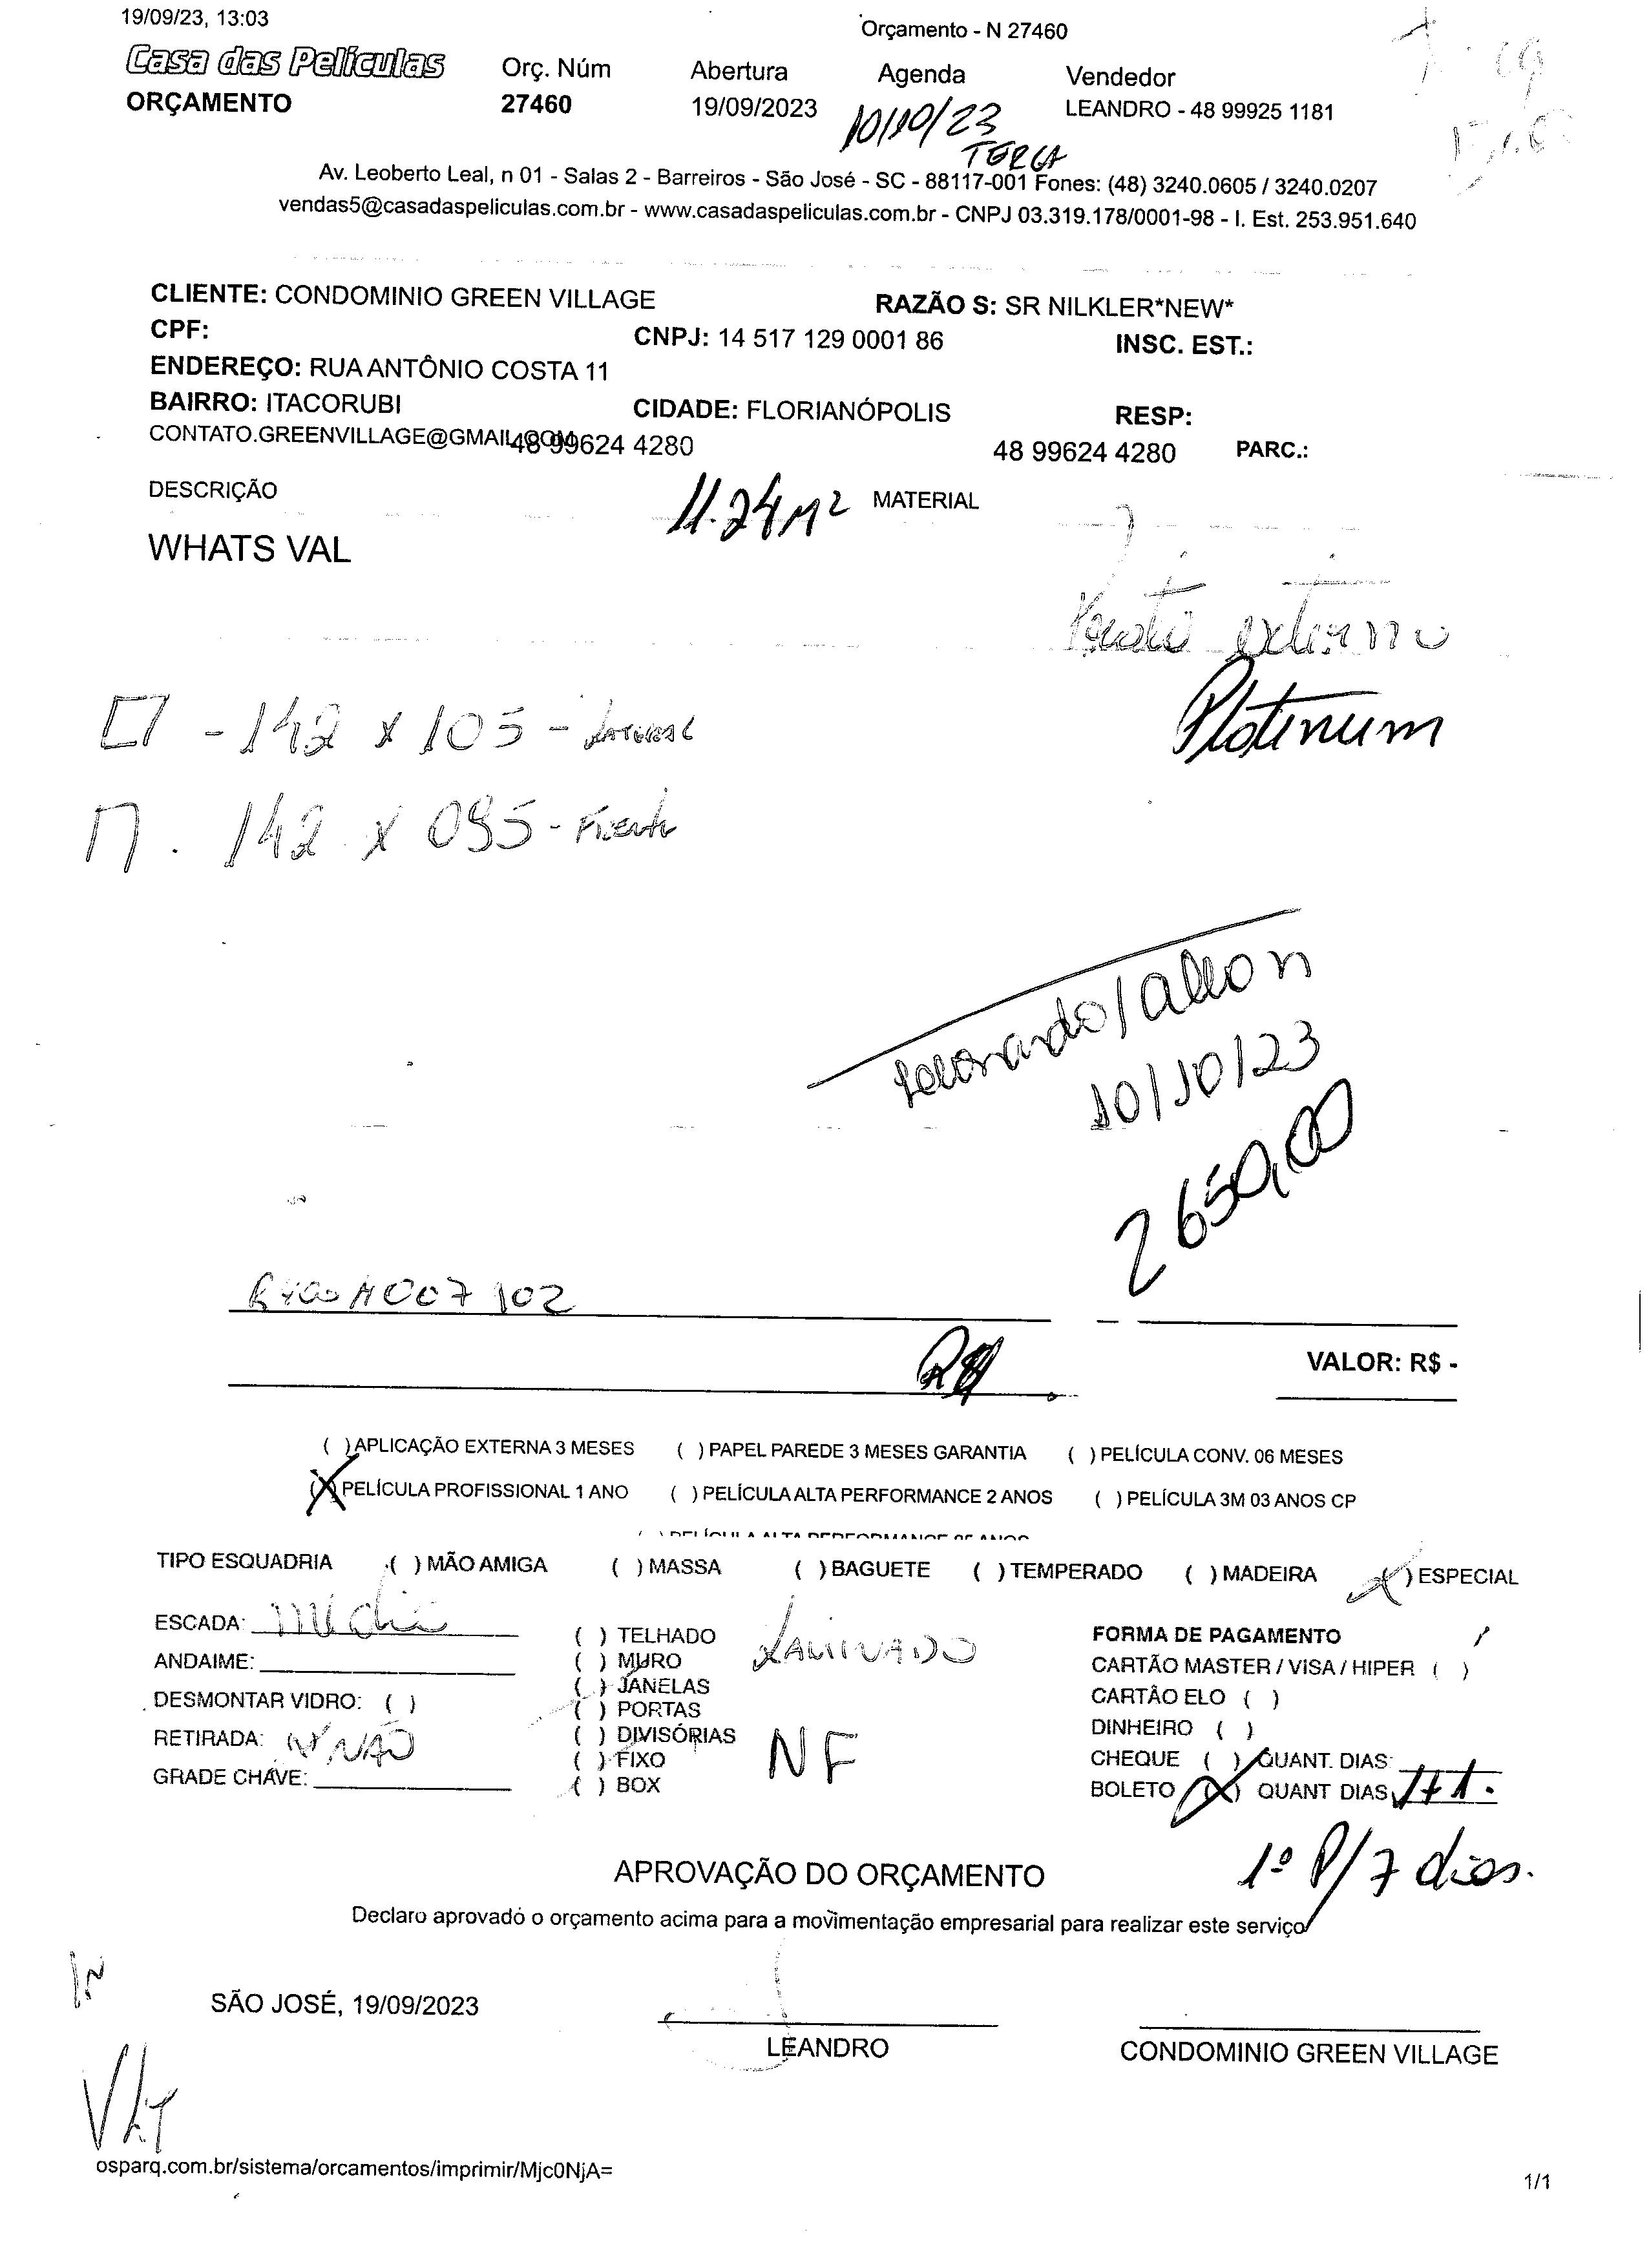 19/09/23, 13:03
Orçamento - N 27460
Casa das Películas
Orç. Núm
Abertura
Agenda
Vendedor
ORÇAMENTO
27460
19/09/2023
10/10/23
LEANDRO - 48 99925 1181
TERÇA
Av. Leoberto Leal, n 01 - Salas 2 - Barreiros - São José - SC - 88117-001 Fones: (48) 3240.0605 / 3240.0207
vendas5@casadaspeliculas.com.br - www.casadaspeliculas.com.br - CNPJ 03.319.178/0001-98 - I. Est. 253.951.640
CLIENTE: CONDOMINIO GREEN VILLAGE
RAZÃO S: SR NILKLER*NEW*
CPF:
CNPJ: 14 517 129 0001 86
INSC. EST.:
ENDEREÇO: RUA ANTÔNIO COSTA 11
BAIRRO: ITACORUBI
CIDADE: FLORIANÓPOLIS
RESP:
CONTATO.GREENVILLAGE@GMAIL.COM
48 99624 4280
48 99624 4280
PARC.:
DESCRIÇÃO
11.24 M²
MATERIAL
WHATS VAL
externo
Platinum
- 142 x 105 - Lateral
142 x 095 - Frente
Leonardo/allon
10/10/23
2650,00
VALOR: R$ -
( ) APLICAÇÃO EXTERNA 3 MESES ( ) PAPEL PAREDE 3 MESES GARANTIA ( ) PELÍCULA CONV. 06 MESES
(X) PELÍCULA PROFISSIONAL 1 ANO ( ) PELÍCULA ALTA PERFORMANCE 2 ANOS ( ) PELÍCULA 3M 03 ANOS CP
( ) PELÍCULA ALTA PERFORMANCE 05 ANOS
TIPO ESQUADRIA ( ) MÃO AMIGA ( ) MASSA ( ) BAGUETE ( ) TEMPERADO ( ) MADEIRA (X) ESPECIAL
ESCADA: Media
ANDAIME:
DESMONTAR VIDRO: ( )
RETIRADA: NÃO
GRADE CHAVE:
( ) TELHADO
( ) MURO
( ) JANELAS
( ) PORTAS
( ) DIVISÓRIAS
( ) FIXO
( ) BOX
LAMINADO
NF
FORMA DE PAGAMENTO
CARTÃO MASTER / VISA / HIPER ( )
CARTÃO ELO ( )
DINHEIRO ( )
CHEQUE ( ) QUANT. DIAS:
BOLETO (X) QUANT DIAS 1+1.
1º P/ 7 dias.
APROVAÇÃO DO ORÇAMENTO
Declaro aprovado o orçamento acima para a movimentação empresarial para realizar este serviço
SÃO JOSÉ, 19/09/2023
LEANDRO
CONDOMINIO GREEN VILLAGE
osparq.com.br/sistema/orcamentos/imprimir/Mjc0NjA=
1/1